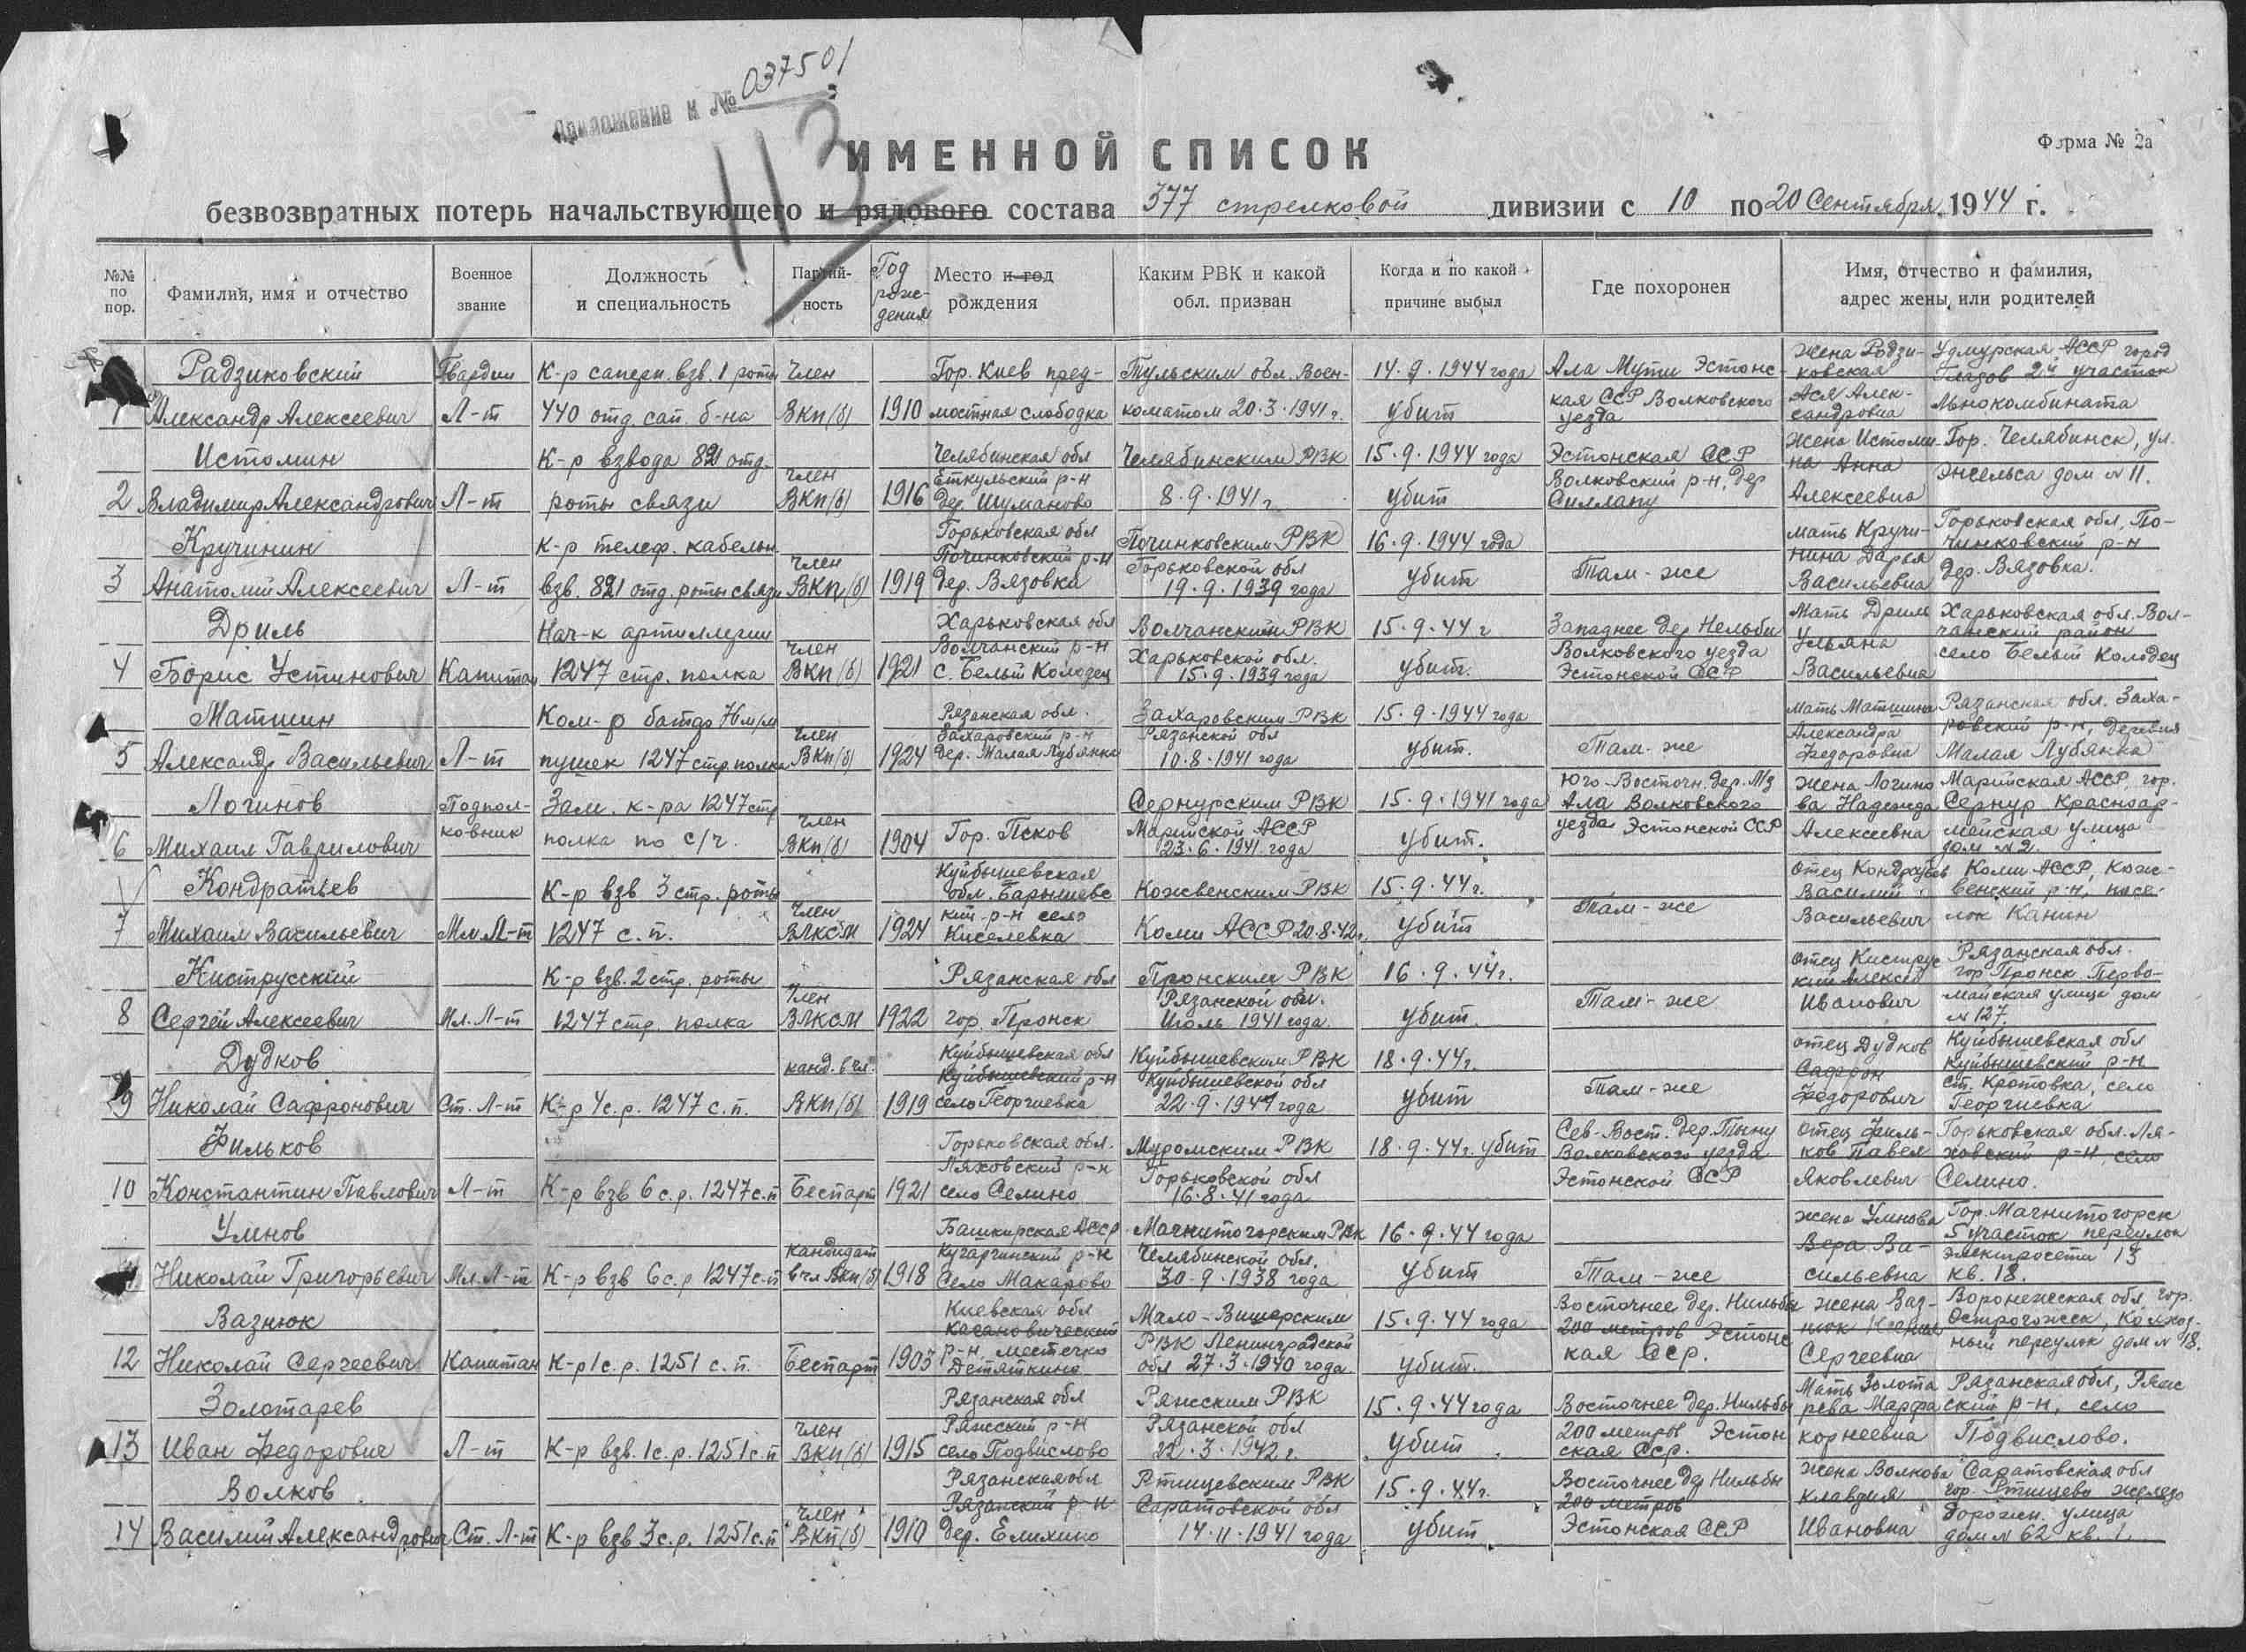 Приложение к № 037501
113
ИМЕННОЙ СПИСОК
Форма № 2а
безвозвратных потерь начальствующего и рядового состава 377 стрелковой дивизии с 10 по 20 Сентября 1944 г.
№№ по пор. Фамилия, имя и отчество Военное звание Должность и специальность Партийность Год рождения Место и год рождения Каким РВК и какой обл. призван Когда и по какой причине выбыл Где похоронен Имя, отчество и фамилия, адрес жены или родителей
1 Радзиковский Александр Алексеевич Гвардии Л-т К-р саперн. взв. 1 роты 440 отд. сап. б-на Член ВКП(б) 1910 Гор. Киев предмостная слободка Тульским обл. Военкоматом 20.3.1941г. 14.9.1944 года убит Ала Мути Эстонская ССР Волковского уезда Жена Радзиковская Ася Александровна Удмурская АССР город Глазов 2й участок Льнокомбината
2 Истомин Владимир Александрович Л-т К-р взвода 821 отд. роты связи член ВКП(б) 1916 Челябинская обл Еткульский р-н дер. Шуманово Челябинским РВК 8.9.1941г 15.9.1944 года убит Эстонская ССР Волковский р-н, дер Силлапу Жена Истомина Анна Алексеевна Гор. Челябинск, ул. Энгельса дом № 11.
3 Кручинин Анатолий Алексеевич Л-т К-р телеф. кабельн взв. 821 отд. роты связи член ВКП(б) 1919 Горьковская обл Починковский р-н дер. Вязовка Починковским РВК Горьковской обл 19.9.1939 года 16.9.1944 года убит Там-же мать Кручинина Дарья Васильевна Горьковская обл, Починковский р-н дер. Вязовка.
4 Дриль Борис Устинович Капитан Нач-к артиллерии 1247 стр. полка член ВКП(б) 1921 Харьковская обл Волчанский р-н с. Белый Колодец Волчанским РВК Харьковской обл. 15.9.1939 года 15.9.44 г убит. Западнее дер Нельби Волковского уезда Эстонской ССР Мать Дриль Ульяна Васильевна Харьковская обл. Волчанский район село Белый Колодец
5 Матшин Александр Васильевич Л-т Ком-р пушек 1247 стр. полка член ВКП(б) 1924 Рязанская обл. Захаровский р-н дер. Малая Лубянка Захаровским РВК Рязанской обл 10.8.1941 года 15.9.1944 года убит. Там-же мать Матшина Александра Федоровна Рязанская обл. Захаровский р-н, деревня Малая Лубянка
6 Логинов Михаил Гаврилович Подполковник Зам. к-ра 1247 стр полка по с/ч. член ВКП(б) 1904 Гор. Псков Сернурским РВК Марийской АССР 23.6.1941 года 15.9.1941 года убит. Юго-Восточн. дер. Мз Ала Волковского уезда Эстонской ССР Жена Логинова Надежда Алексеевна Марийская АССР, гор. Сернур Красноармейская улица дом № 2.
7 Кондратьев Михаил Васильевич Мл. Л-т К-р взв 3 стр. роты 1247 с.п. член ВЛКСМ 1924 Куйбышевская обл. Барышевский р-н село Киселевка Кожвенским РВК Коми АССР 20.8.42г. 15.9.44г. убит Там-же отец Кондратьев Василий Васильевич Коми АССР, Кожвенский р-н, поселок Канин
8 Киструсский Сергей Алексеевич Мл. Л-т К-р взв. 2 стр. роты 1247 стр. полка Член ВЛКСМ 1922 Рязанская обл гор. Пронск Пронским РВК Рязанской обл. Июль 1941 года 16.9.44г. убит. Там-же отец Киструсский Алексей Иванович Рязанская обл. гор. Пронск Первомайская улица дом № 127.
9 Дудков Николай Сафронович Ст. Л-т К-р 4 с.р. 1247 с.п. канд. в чл. ВКП(б) 1919 Куйбышевская обл Куйбышевский р-н село Георгиевка Куйбышевским РВК Куйбышевской обл 22.9.1941 года 18.9.44г. убит Там-же отец Дудков Сафрон Федорович Куйбышевская обл Куйбышевский р-н ст. Кротовка, село Георгиевка
10 Фильков Константин Павлович Л-т К-р взв 6 с.р. 1247 с.п Беспарт 1921 Горьковская обл. Ляховский р-н село Селино Муромским РВК Горьковской обл 16.8.41 года 18.9.44г. убит Сев-Вост. дер. Тыну Волковского уезда Эстонской ССР отец Фильков Павел Яковлевич Горьковская обл. Ляховский р-н, село Селино.
11 Умнов Николай Григорьевич Мл. Л-т К-р взв 6 с.р 1247 с.п кандидат в чл ВКП(б) 1918 Башкирская АССР Кугарчинский р-н село Макарово Магнитогорским РВК Челябинской обл. 30.9.1938 года 16.9.44 года убит Там-же жена Умнова Вера Васильевна Гор. Магнитогорск 5 участок переулок Электросети 13 кв. 18.
12 Вазнюк Николай Сергеевич Капитан К-р 1 с.р. 1251 с.п. Беспарт 1903 Киевская обл Кагановический р-н, местечко Детяткино Мало-Вишерским РВК Ленинградской обл 27.3.1940 года 15.9.44 года убит. Восточнее дер. Нильбы 200 метров Эстонская ССР. жена Вазнюк Ксения Сергеевна Воронежская обл гор. Острогожск, Колхозный переулок дом № 18.
13 Золотарев Иван Федорович Л-т К-р взв. 1 с.р. 1251 с.п член ВКП(б) 1915 Рязанская обл Ряжский р-н село Подвислово Ряжским РВК Рязанской обл 22.3.1942г. 15.9.44 года убит Восточнее дер. Нильбы 200 метров Эстонская ССР. Мать Золотарева Марфа Корнеевна Рязанская обл, Ряжский р-н, село Подвислово.
14 Волков Василий Александрович Ст. Л-т К-р взв 3 с.р. 1251 с.п член ВКП(б) 1910 Рязанская обл Рязанский р-н дер. Елихино Ртищевским РВК Саратовской обл 14.11.1941 года 15.9.44г. убит Восточнее дер Нильбы 200 метров Эстонская ССР жена Волкова Клавдия Ивановна Саратовская обл гор. Ртищево железодорожн. улица дом № 62 кв. 1.